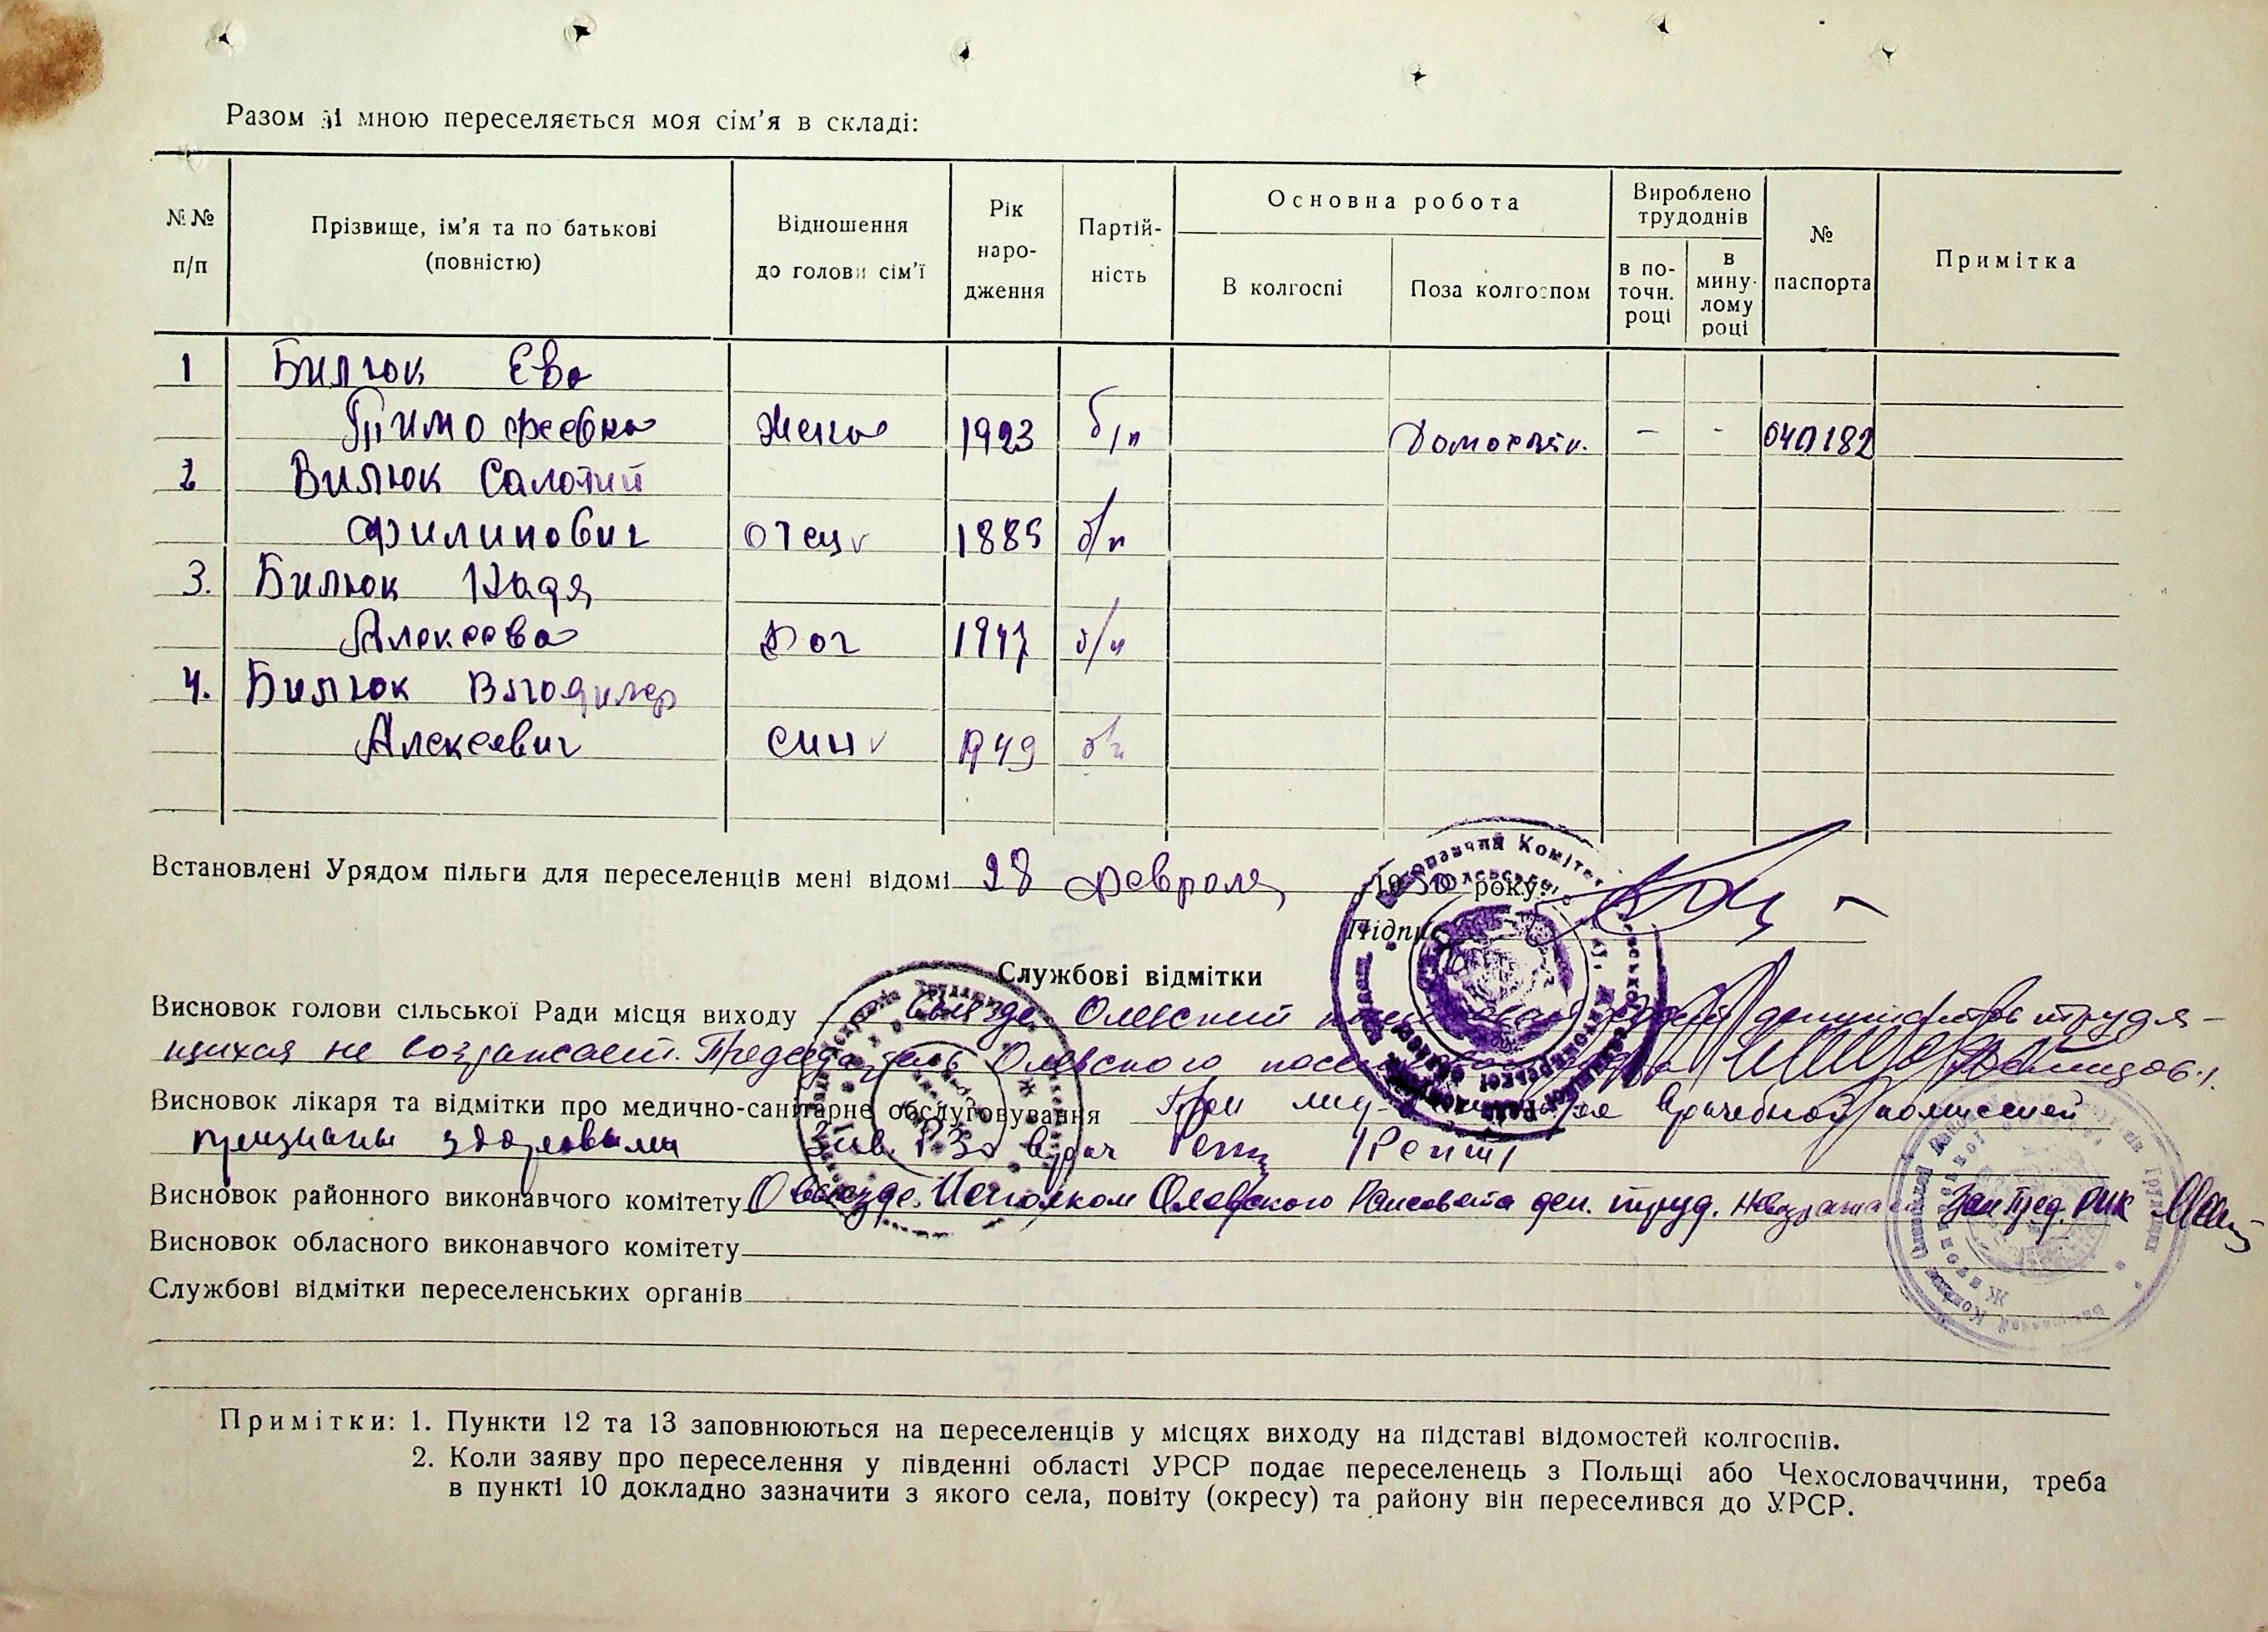 Разом зі мною переселяється моя сім'я в складі:
№№ п/п
Прізвище, ім'я та по батькові (повністю)
Відношення до голови сім'ї
Рік наро-дження
Партій-ність
Основна робота
В колгоспі
Поза колгоспом
Вироблено трудоднів
в по-точн. році
в мину-лому році
№ паспорта
Примітка
1 Билюк Ева
Тимофеевна жена 1923 б/п Домохозяй. - - 040182
2 Билюк Салотий
Филипович отец 1885 б/п
3. Билюк Надя
Алексеева Доч 1947 б/п
4. Билюк Владимер
Алексеевич син 1949 б/п
Встановлені Урядом пільги для переселенців мені відомі 28 февраля 1950 року.
Підпис
Службові відмітки
Висновок голови сільської Ради місця виходу О выезде Олевский депутатов трудя-
щихся не возражает. Председатель Олевского
Висновок лікаря та відмітки про медично-санітарне обслуговування При врачебной комиссией
признаны здоровыми Зав. РЗо врач
Висновок районного виконавчого комітету О выезде. Исполком Олевского Райсовета деп. труд. не возражает Зам Пред. РИК
Висновок обласного виконавчого комітету
Службові відмітки переселенських органів
Примітки: 1. Пункти 12 та 13 заповнюються на переселенців у місцях виходу на підставі відомостей колгоспів.
2. Коли заяву про переселення у південні області УРСР подає переселенець з Польщі або Чехословаччини, треба
в пункті 10 докладно зазначити з якого села, повіту (окресу) та району він переселився до УРСР.